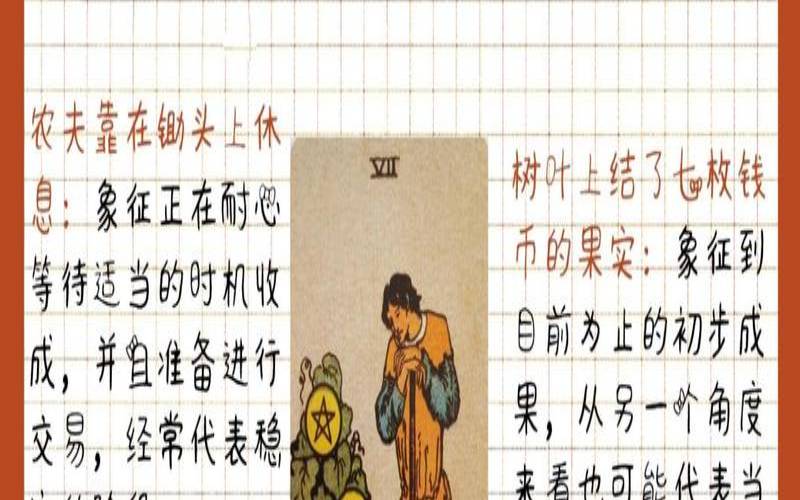 农夫靠在锄头上休
息：象征正在耐心
等待适当的时机收
成，并且准备进行
交易，经常代表稳
VII
树叶上结了七枚钱
币的果实：象征到
目前为止的初步成
果，从另一个角度
来看也可能代表当